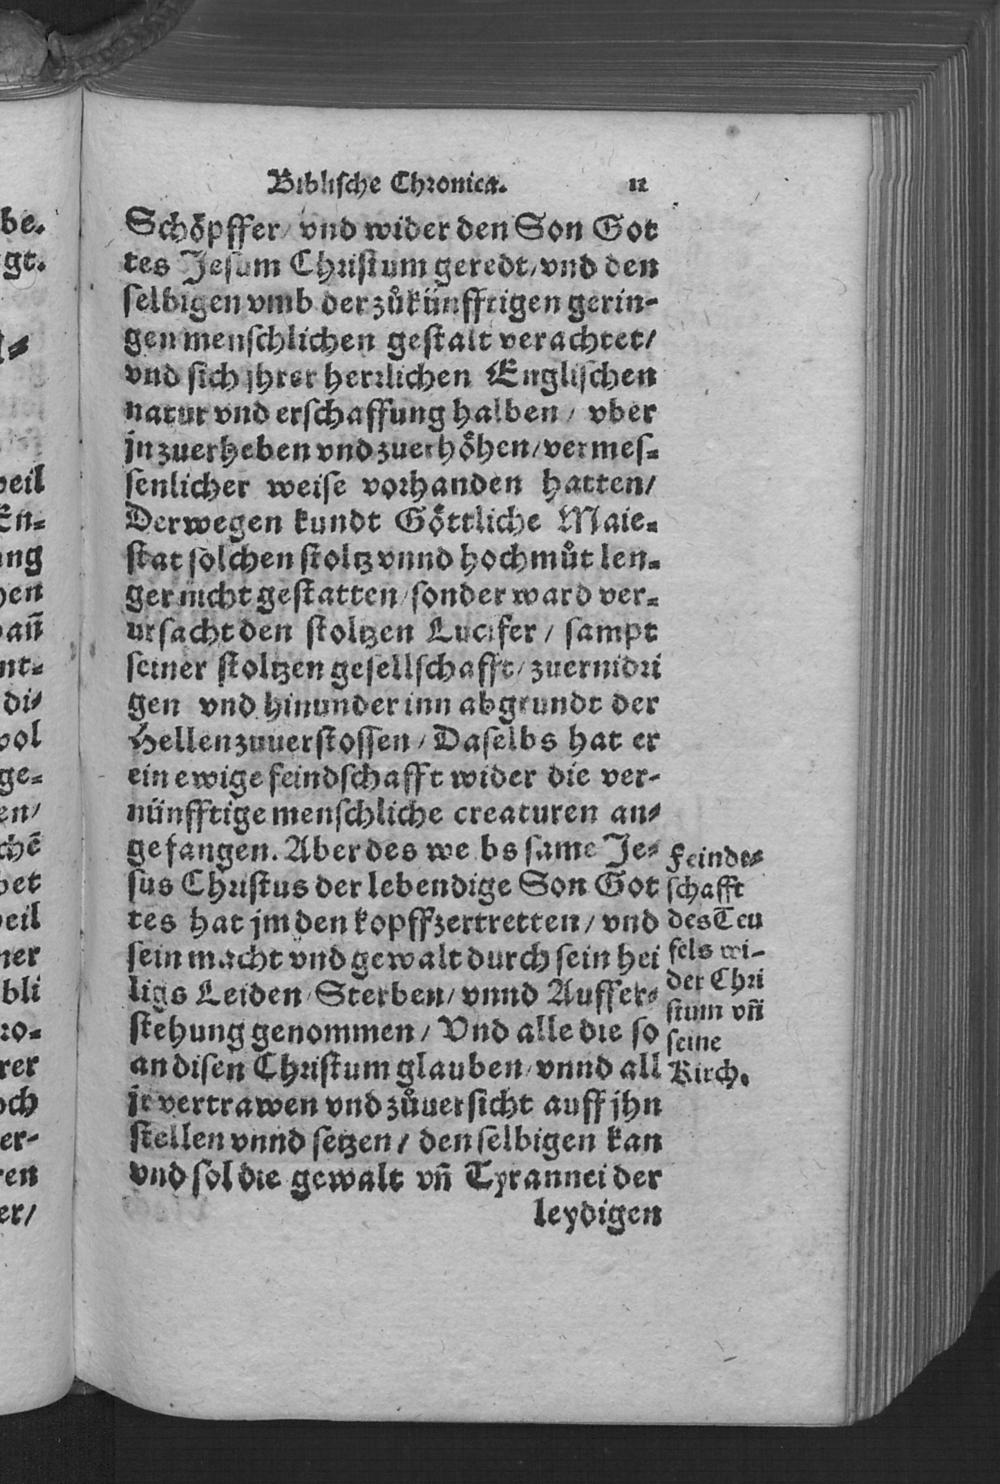 Biblische Chronica. 11
Schöpffer/ vnd wider den Son Got
tes Jesum Christum geredt/ vnd den
selbigen vmb der zůkünfftigen gerin-
gen menschlichen gestalt verachtet/
vnd sich jhrer herrlichen Englischen
natur vnd erschaffung halben/ vber
jn zuerheben vnd zuerhöhen/ vermes-
senlicher weise vorhanden hatten/
Derwegen kundt Göttliche Maie-
stat solchen stoltz vnnd hochmůt len-
ger nicht gestatten/ sonder ward ver-
ursacht den stoltzen Lucifer/ sampt
seiner stoltzen gesellschafft/ zuernidri
gen vnd hinunder inn abgrundt der
Hellen zuuerstossen/ Daselbs hat er
ein ewige feindschafft wider die ver-
nünfftige menschliche creaturen an-
gefangen. Aber des weibs same Je-
sus Christus der lebendige Son Got
tes hat jm den kopff zertretten/ vnd
sein macht vnd gewalt durch sein hei
ligs Leiden/ Sterben/ vnnd Auffer-
stehung genommen/ Vnd alle die so
an disen Christum glauben/ vnnd all
jr vertrawen vnd zůuersicht auff jhn
stellen vnnd setzen/ den selbigen kan
vnd sol die gewalt vn̄ Tyrannei der
leydigen
Feinde-
schafft
des Teu
fels wi-
der Chri
stum vn̄
seine
Kirch.
be.
gt.
weil
En-
ung
hen
nt-
di-
vol
ge-
en/
chē
bet
weil
ner
bli
ro-
rer
och
er-
ren
er/